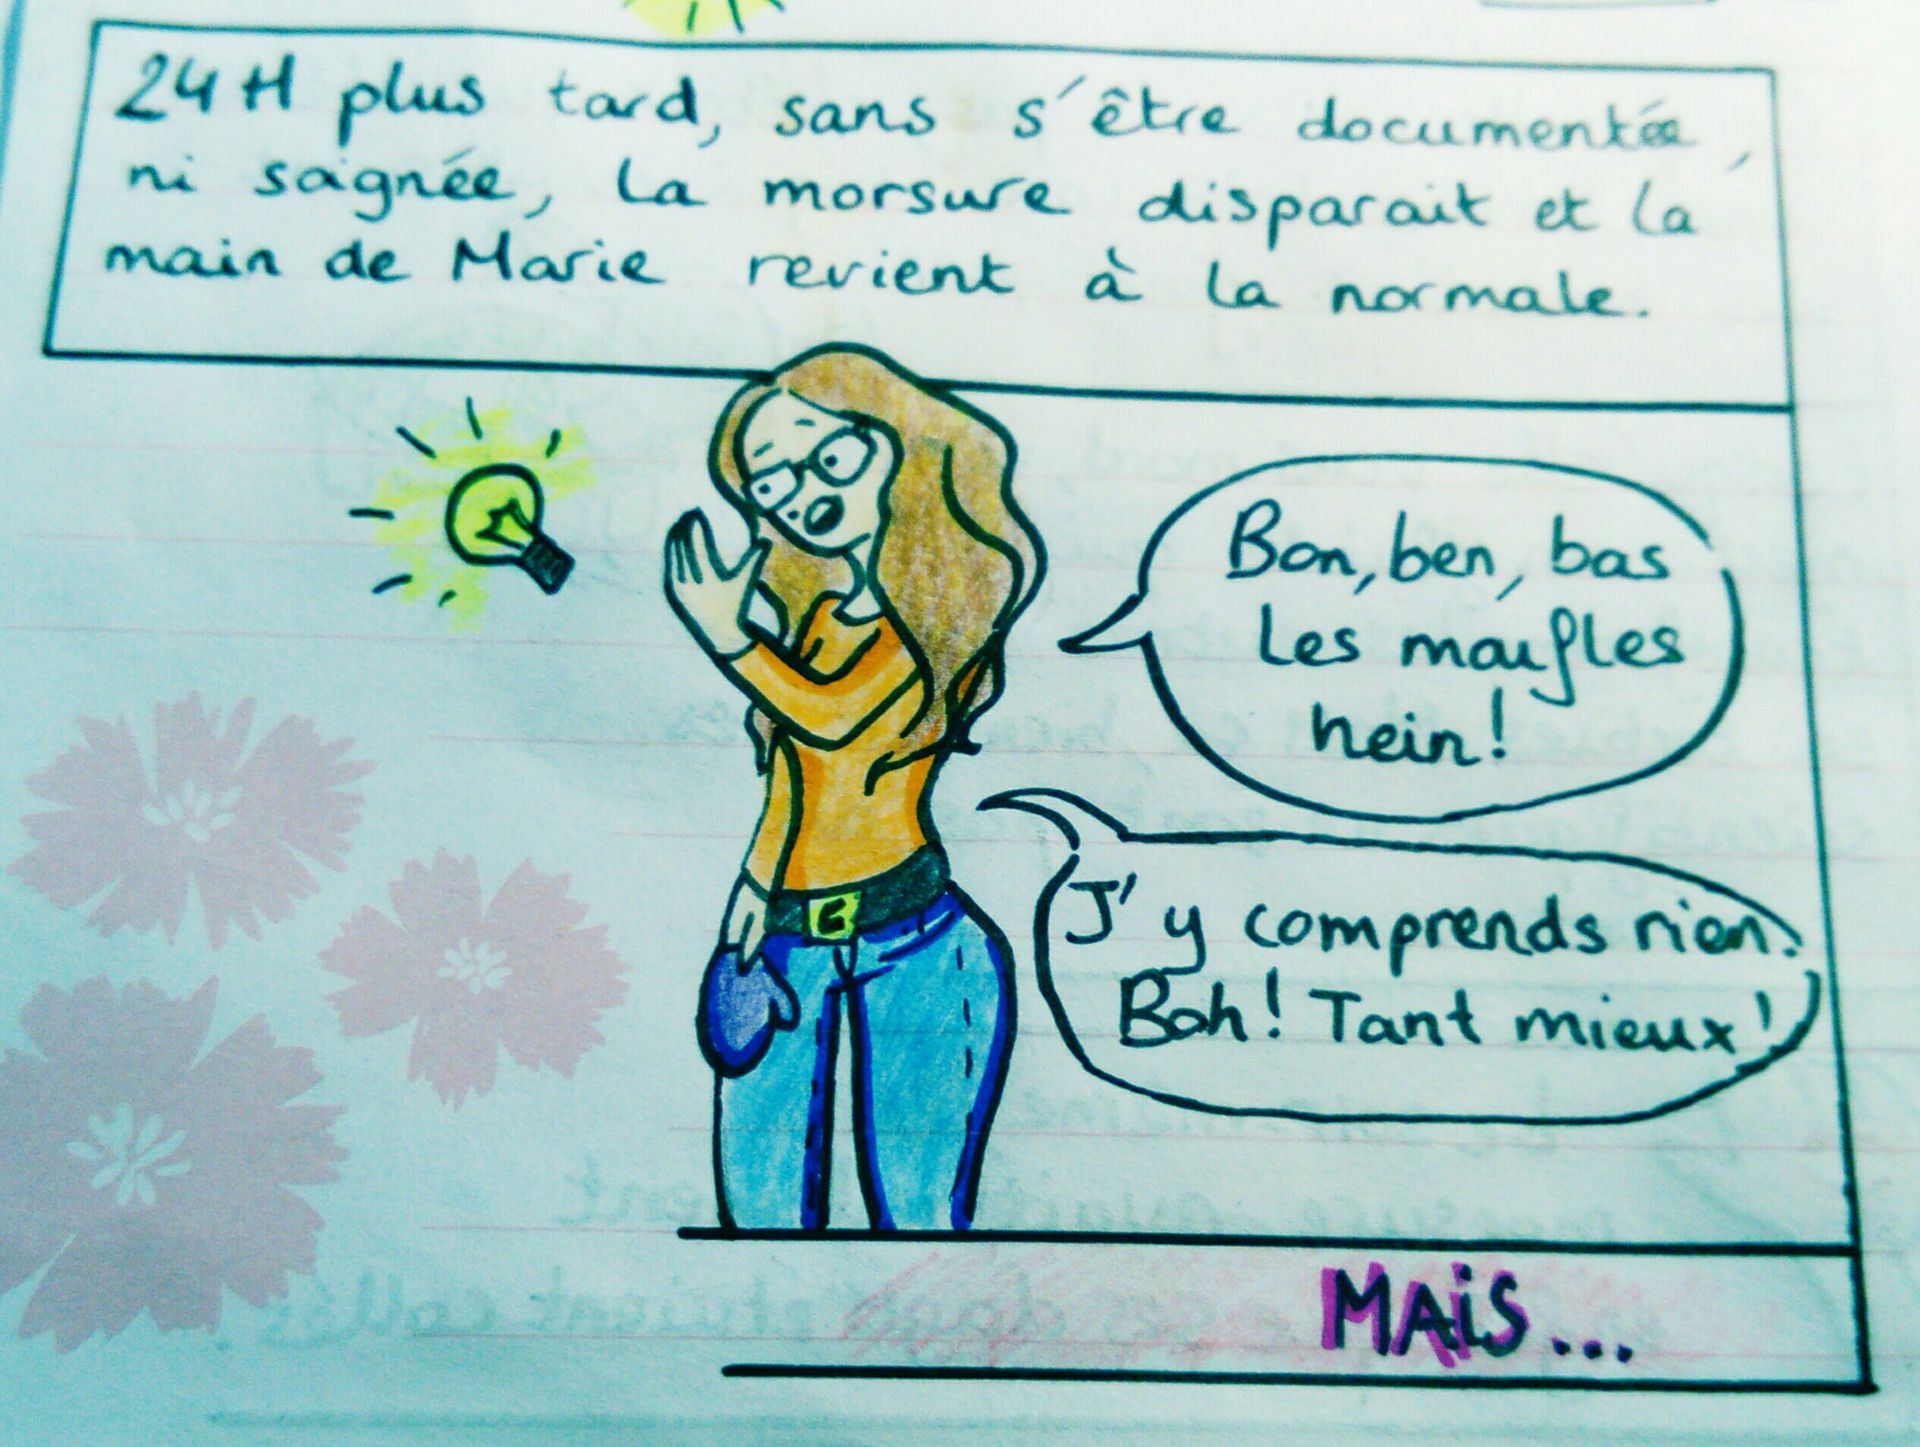 24H plus tard, sans s'être documentée,
ni soignée, la morsure disparait et la
main de Marie revient à la normale.
Bon, ben, bas
les moufles
hein!
J'y comprends rien.
Boh! Tant mieux!
MAIS...